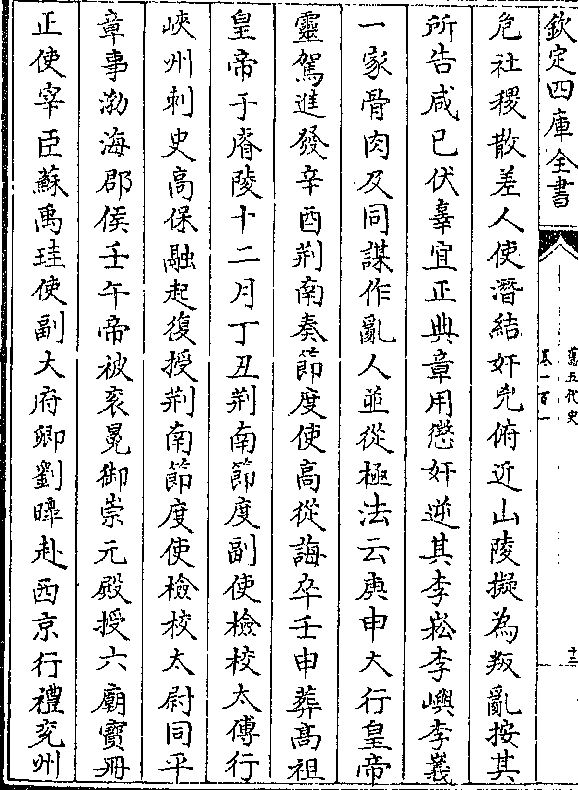 欽定四庫全書
舊五代史
卷一百一
十三
危社稷散差人使潛結奸兇俯近山陵擬為叛亂按其
所告咸已伏辜宜正典章用懲奸逆其李崧李嶼李羲
一家骨肉及同謀作亂人並從極法云庚申大行皇帝
靈駕進發辛酉荆南奏節度使高從誨卒壬申葬髙祖
皇帝于睿陵十二月丁丑荆南節度副使檢校太傅行
峽州刺史高保融起復授荆南節度使檢校太尉同平
章事渤海郡侯壬午帝被衮冕御崇元殿授六廟寳冊
正使宰臣蘇禹珪使副大府卿劉皡赴西京行禮兖州